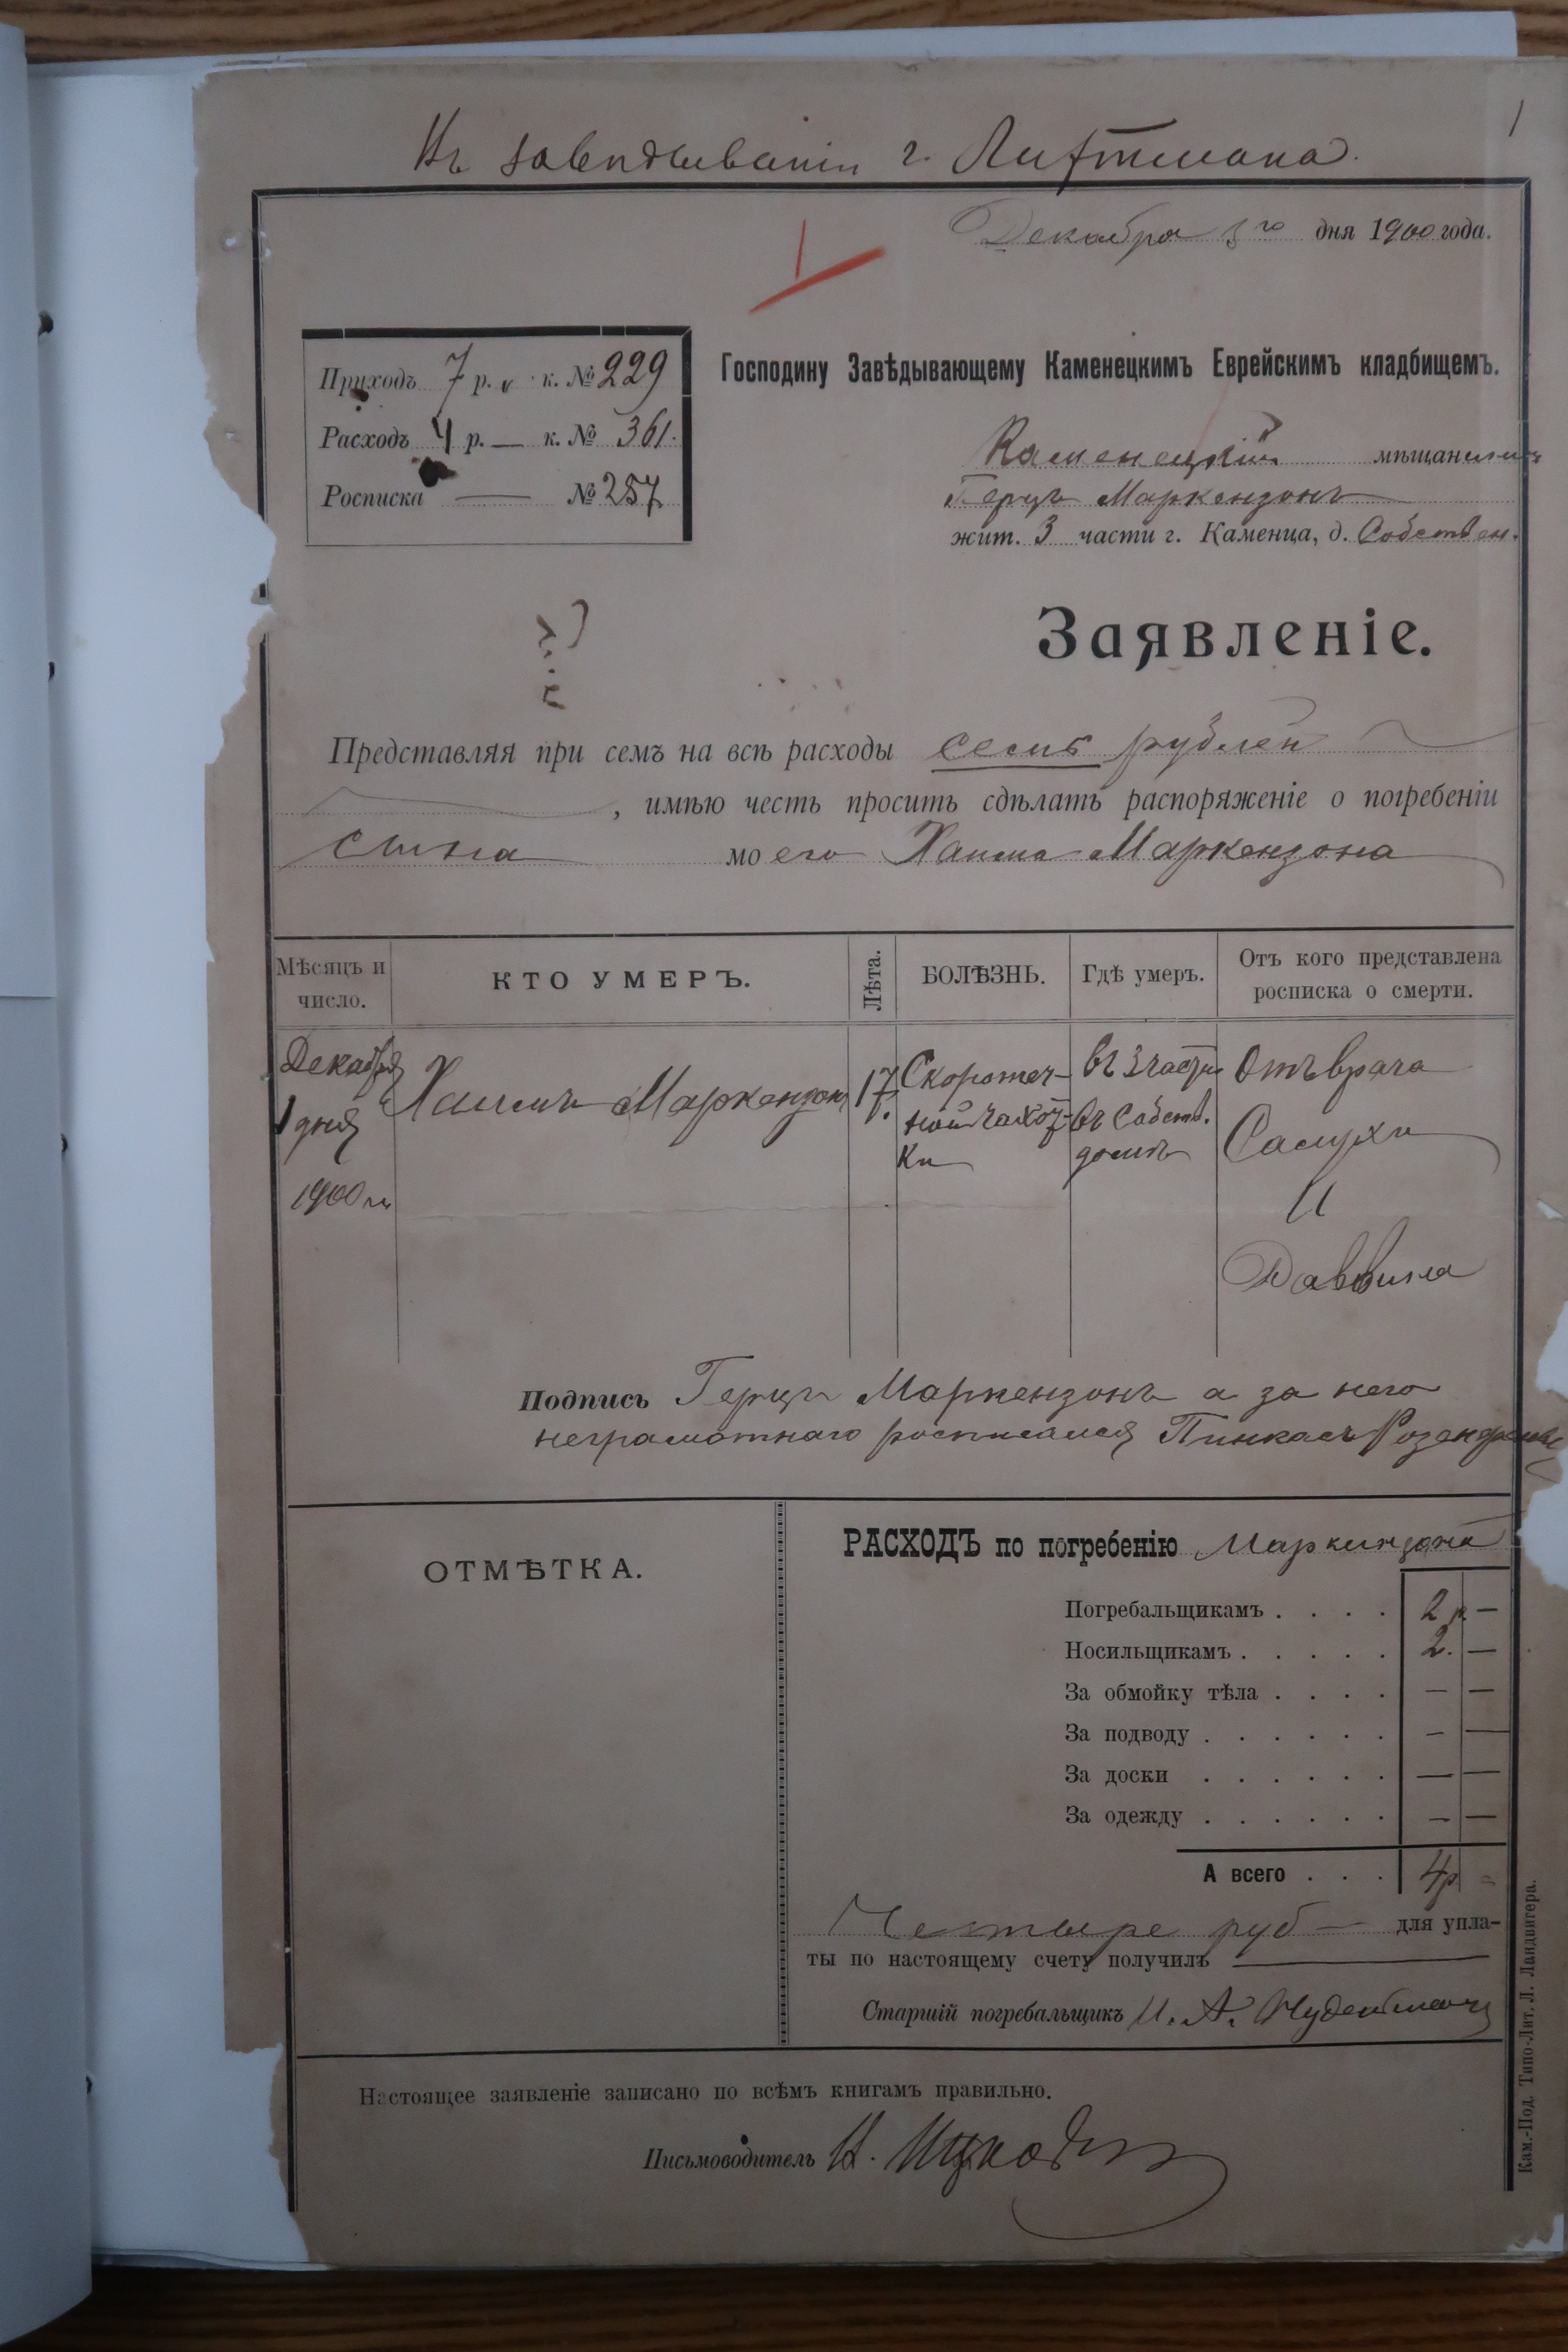 Въ завѣдываніи г. Лифтмана.
1
Декабря 3го дня 1900 года.
1
Приходъ 7 р. к. № 229
Расходъ 4 р. — к. № 361.
Росписка — № 257
Господину Завѣдывающему Каменецкимъ Еврейскимъ кладбищемъ.
Каменецкій мѣщанинъ
Герцъ Маркензонъ
жит. 3 части г. Каменца, д. Собствен.
Заявленіе.
Представляя при семъ на всѣ расходы семь рублей
, имѣю честь просить сдѣлать распоряженіе о погребеніи
сына моего Хаима Маркензона
Мѣсяцъ и число.
КТО УМЕРЪ.
Лѣта.
БОЛѢЗНЬ.
Гдѣ умеръ.
Отъ кого представлена росписка о смерти.
Декабря 1 дня 1900 г.
Хаимъ Маркензонъ
17.
Скоротеч-
ной чахот-
ки
въ 3 части
въ собств.
домѣ
Отъ врача
и
Подпись Герцъ Маркензонъ а за него
неграмотнаго росписался Пинкасъ
ОТМѢТКА.
РАСХОДЪ по погребенію Маркинзона
Погребальщикамъ . . . . 2 р. —
Носильщикамъ . . . . . 2. —
За обмойку тѣла . . . . — —
За подводу . . . . . — —
За доски . . . . . . — —
За одежду . . . . . . — —
А всего . . . 4 р.
Четыре руб — для упла-
ты по настоящему счету получилъ
Старшій погребальщикъ И. А.
Настоящее заявленіе записано по всѣмъ книгамъ правильно.
Письмоводитель
Кам.-Под. Типо-Лит. Л. Ландвигера.